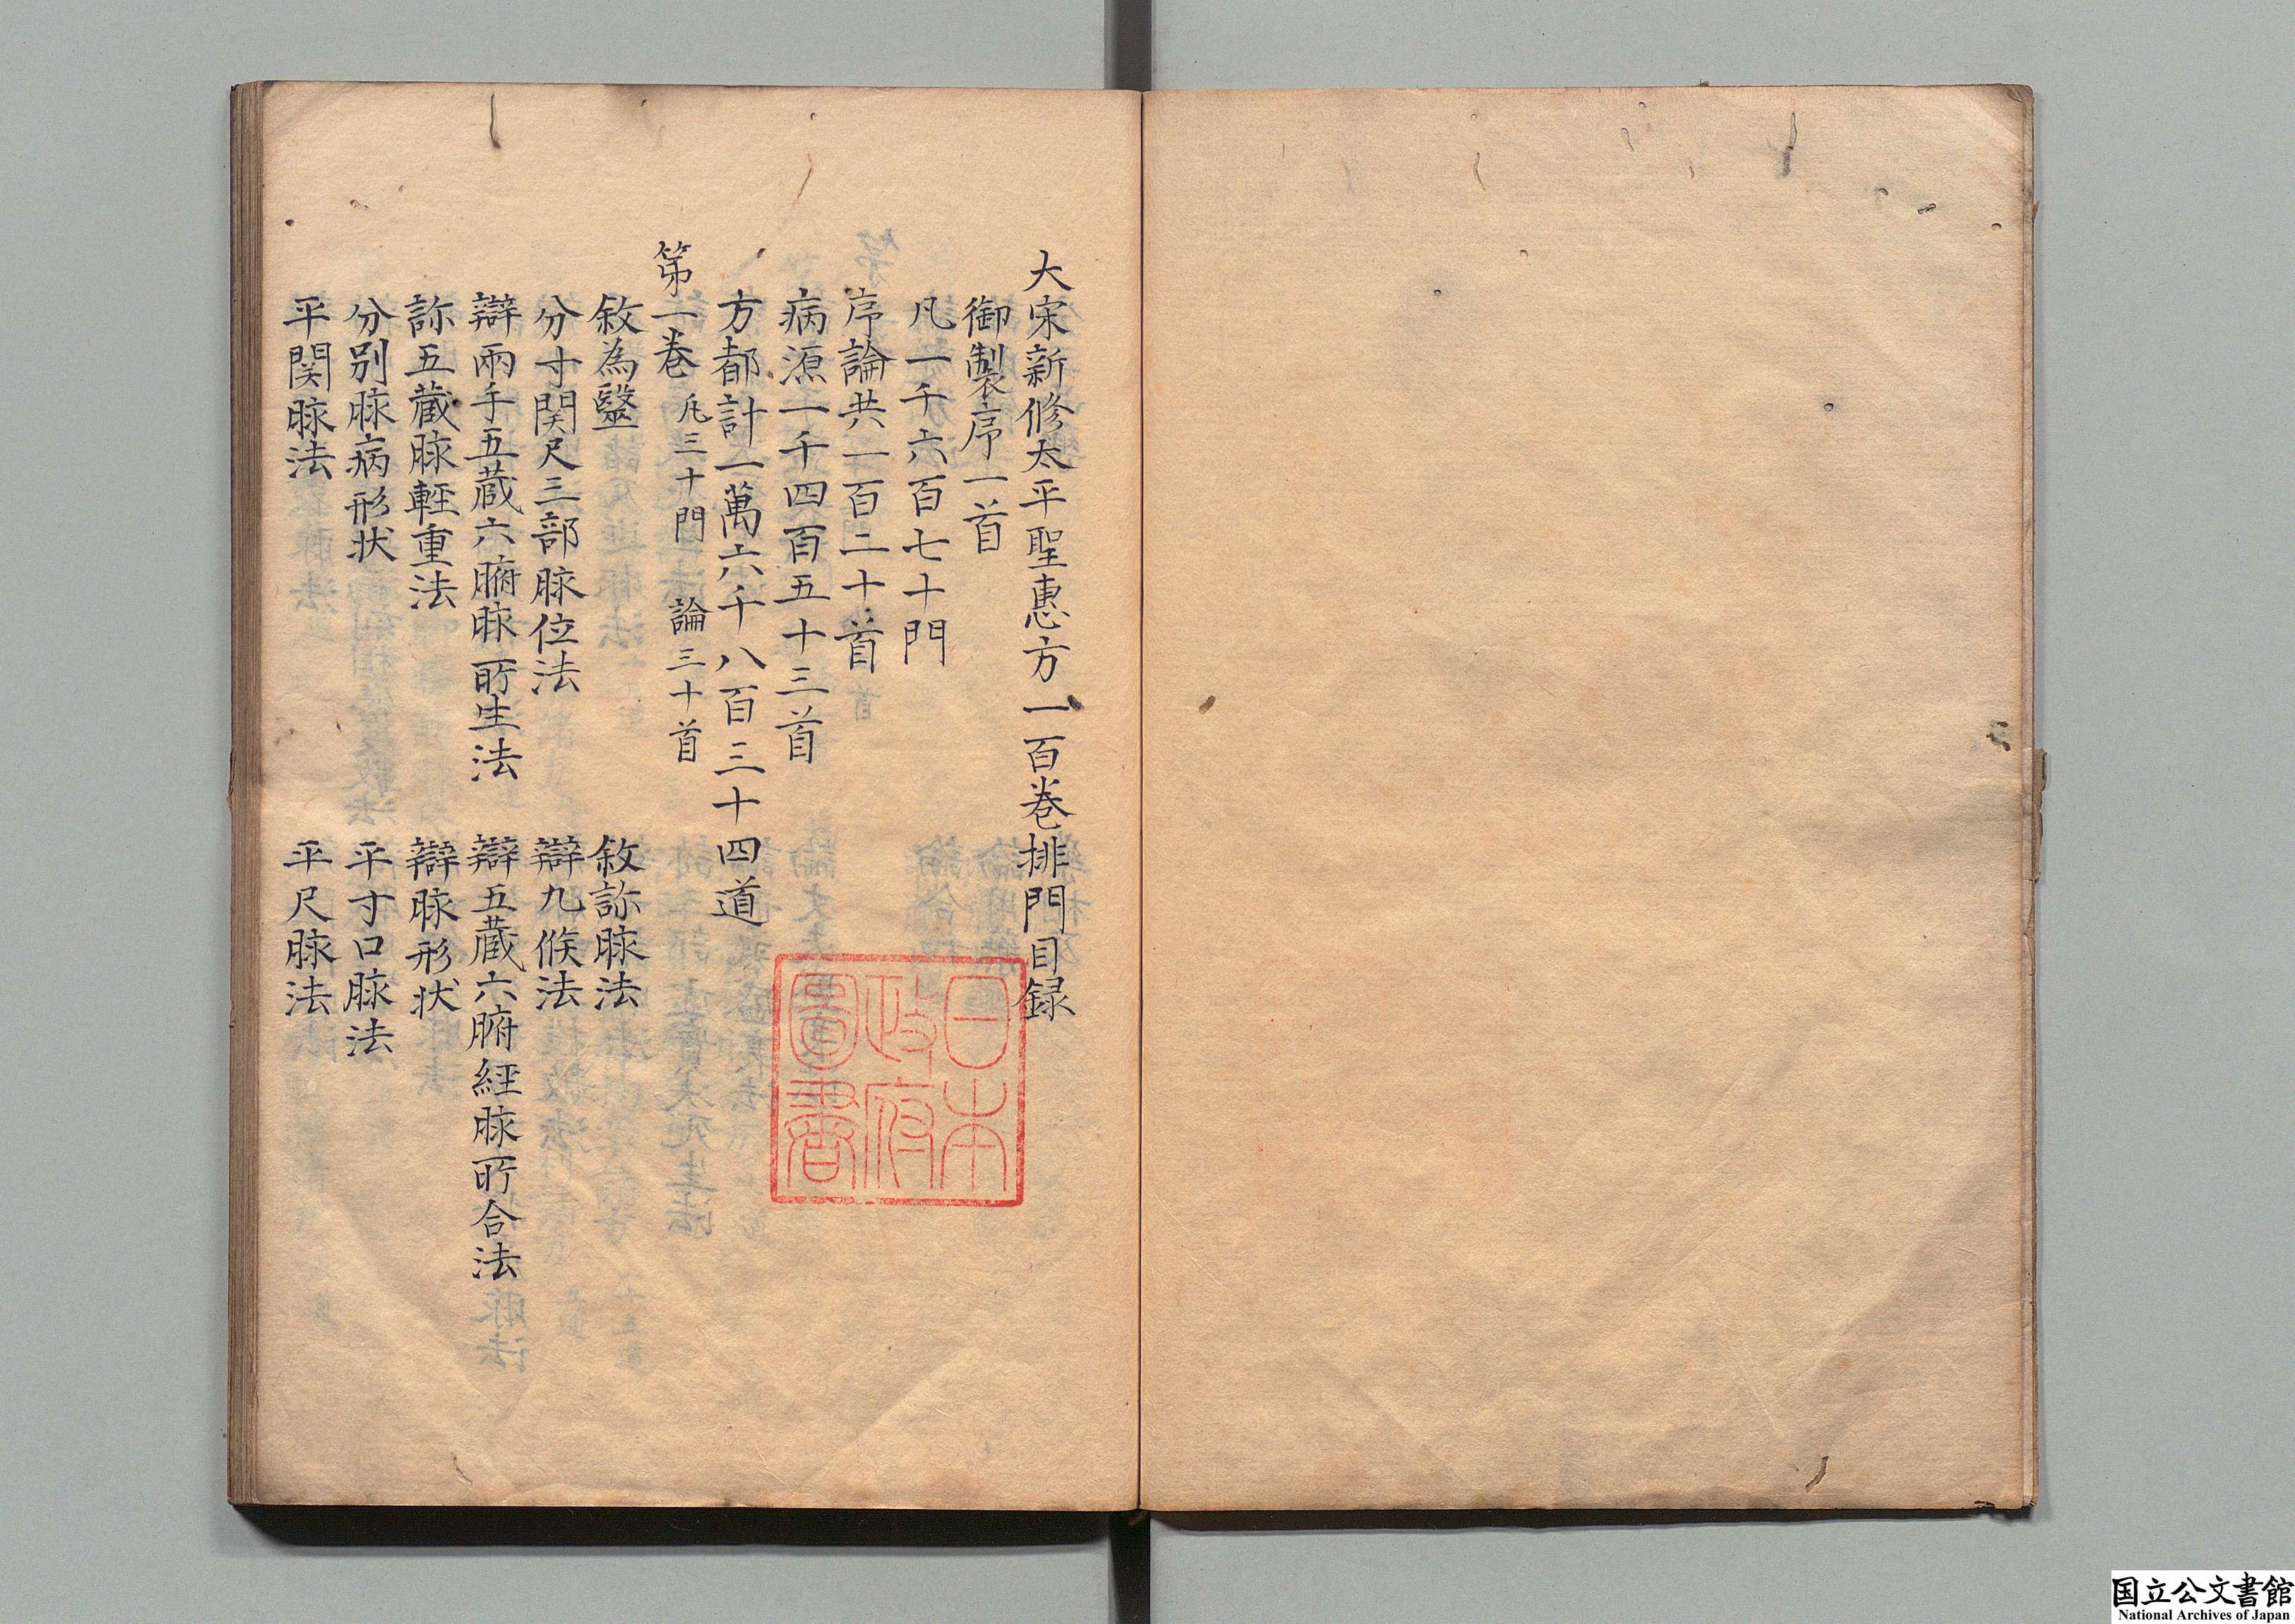 大宋新修太平聖惠方一百巻排門目録
御製序一首
凡一千六百七十門
序論共一百二十首
病源一千四百五十三首
方都計一萬六千八百三十四道
第一巻 凡三十門 論三十首
敘為毉 敘診脉法
分寸関尺三部脉位法 辯九候法
辯兩手五蔵六腑脉所生法 辯五蔵六腑經脉所合法
診五蔵脉輕重法 辯脉形状
分別脉病形状 平寸口脉法
平関脉法 平尺脉法
日本
政府
圖書
国立公文書館
National Archives of Japan